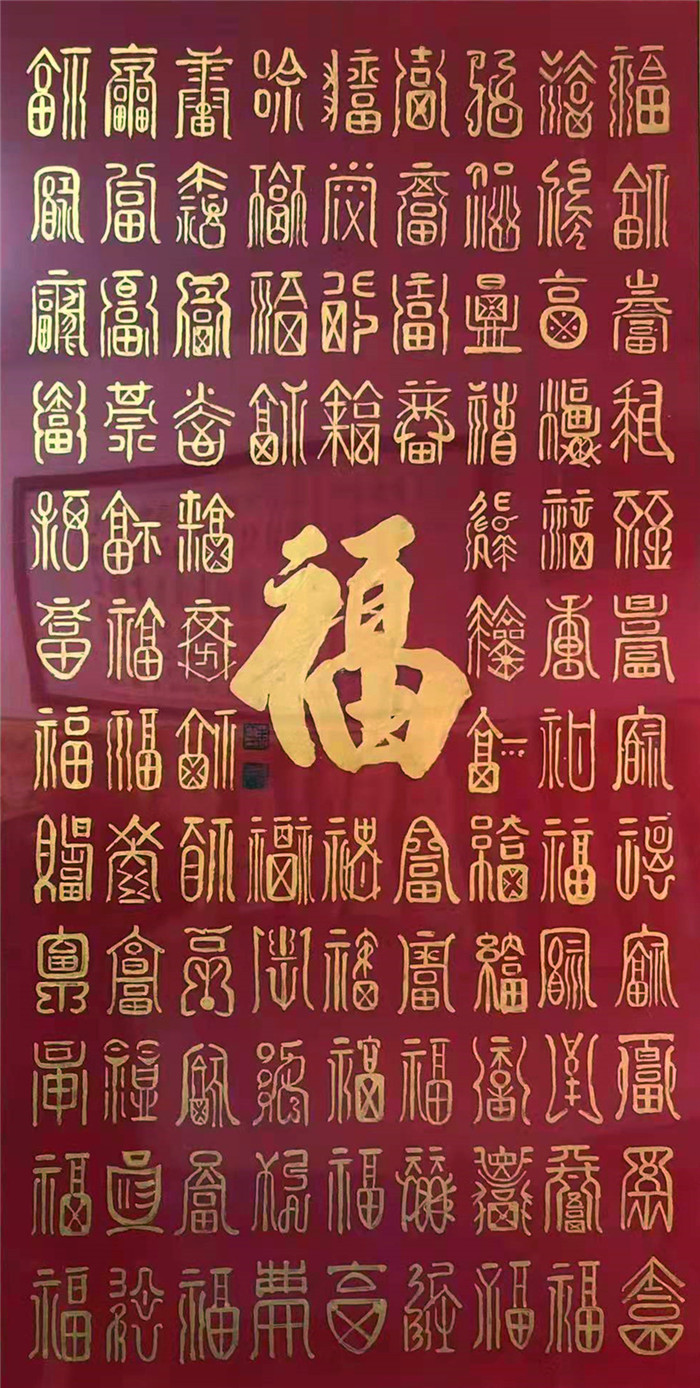 福福福福福福福福福
福福福福福福福福福
福福福福福福福福福
福福福福福福福福福
福福福福福福
福福福福福福
福
福福福福福福
福福福福福福福福福
福福福福福福福福福
福福福福福福福福福
福福福福福福福福福
福福福福福福福福福